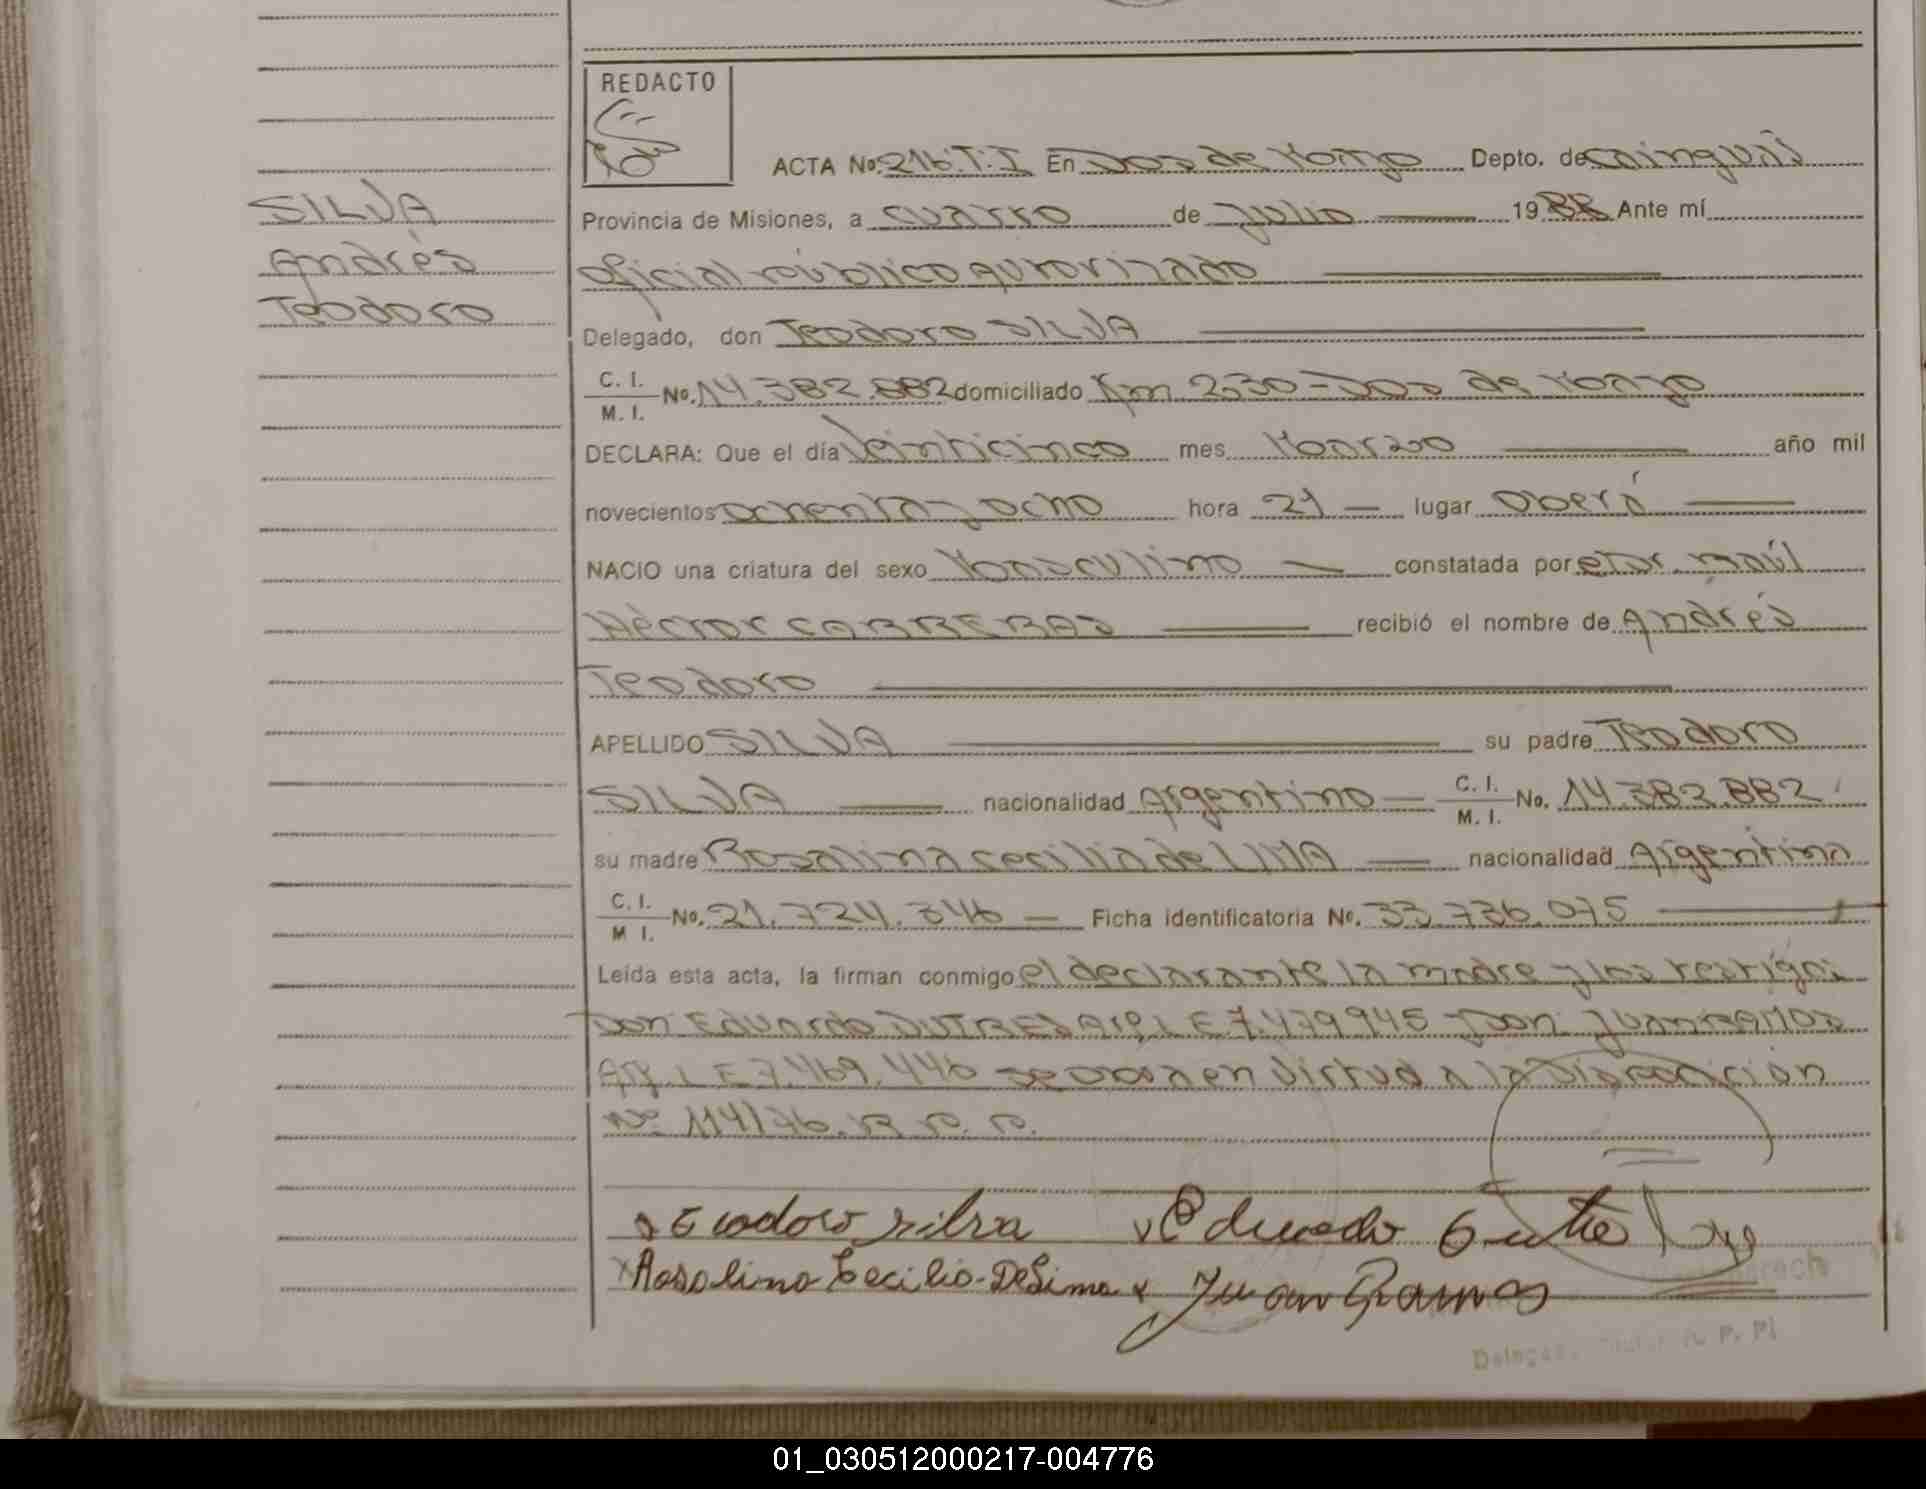 REDACTO
ACTA No. 216.T.I En Dos de Mayo Depto. de Cainguás
SILVA
Andrés
Teodoro
Provincia de Misiones, a cuatro de Julio 1988 Ante mí
oficial público autorizado
Delegado, don Teodoro SILVA
C. I.
M. I. No. 14.382.882 domiciliado Km 230 - Dos de Mayo
DECLARA: Que el día Veinticinco mes Marzo año mil
novecientos ochenta y ocho hora 21 lugar Oberá
NACIO una criatura del sexo Masculino constatada por el Dr. Raúl
Héctor CABRERAS recibió el nombre de Andrés
Teodoro
APELLIDO SILVA su padre Teodoro
SILVA nacionalidad Argentino C. I.
M. I. No. 14.382.882
su madre Rosalina Cecilia de LIMA nacionalidad Argentina
C. I.
M I. No. 21.724.346 Ficha identificatoria No. 33.736.075
Leída esta acta, la firman conmigo el declarante la madre y los testigos
Don Eduardo Arg. L E 7.479.945 y Don Juan RAMOS
Arg. L E 7.469.446 se labra en virtud a la Disposición
Nº 114/76. R P. P.
Teodoro Silva Eduardo
Rosalina Cecilia De Lima Juan Ramos
Delegado Titular R. P. P|
01_030512000217-004776